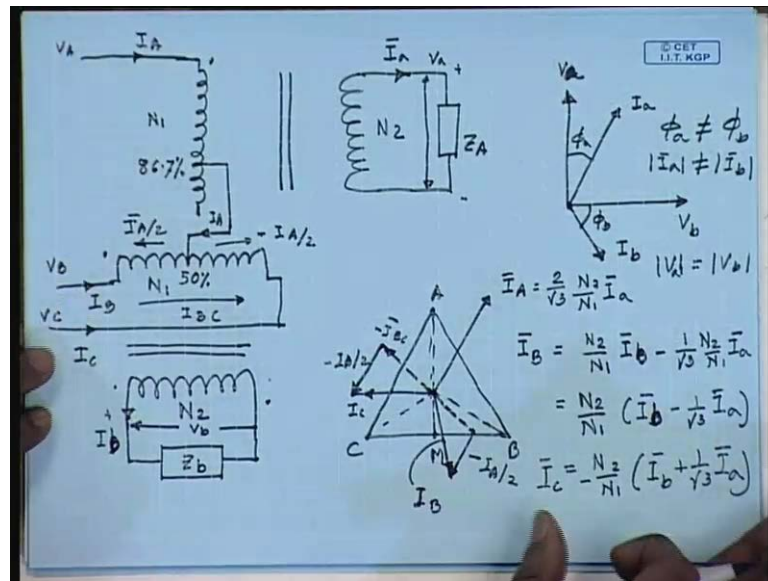 © CET
I.I.T. KGP
V_A
I_A
N_1
86.7%
I_A
Ī_A/2
-I_A/2
V_B
I_B
N_1
50%
I_BC
V_C
I_C
N_2
+
I_b
V_b
Z_b
Ī_a
V_a
+
N_2
Z_A
-
V_a
I_a
ϕ_a
ϕ_a ≠ ϕ_b
|Ī_a| ≠ |Ī_b|
V_b
ϕ_b
I_b
|V_a| = |V_b|
A
-Ī_BC
-I_A/2
I_C
C
M
B
-I_A/2
I_B
Ī_A = 2/√3 N_2/N_1 Ī_a
Ī_B = N_2/N_1 Ī_b - 1/√3 N_2/N_1 Ī_a
= N_2/N_1 (Ī_b - 1/√3 Ī_a)
Ī_c = -N_2/N_1 (Ī_b + 1/√3 Ī_a)